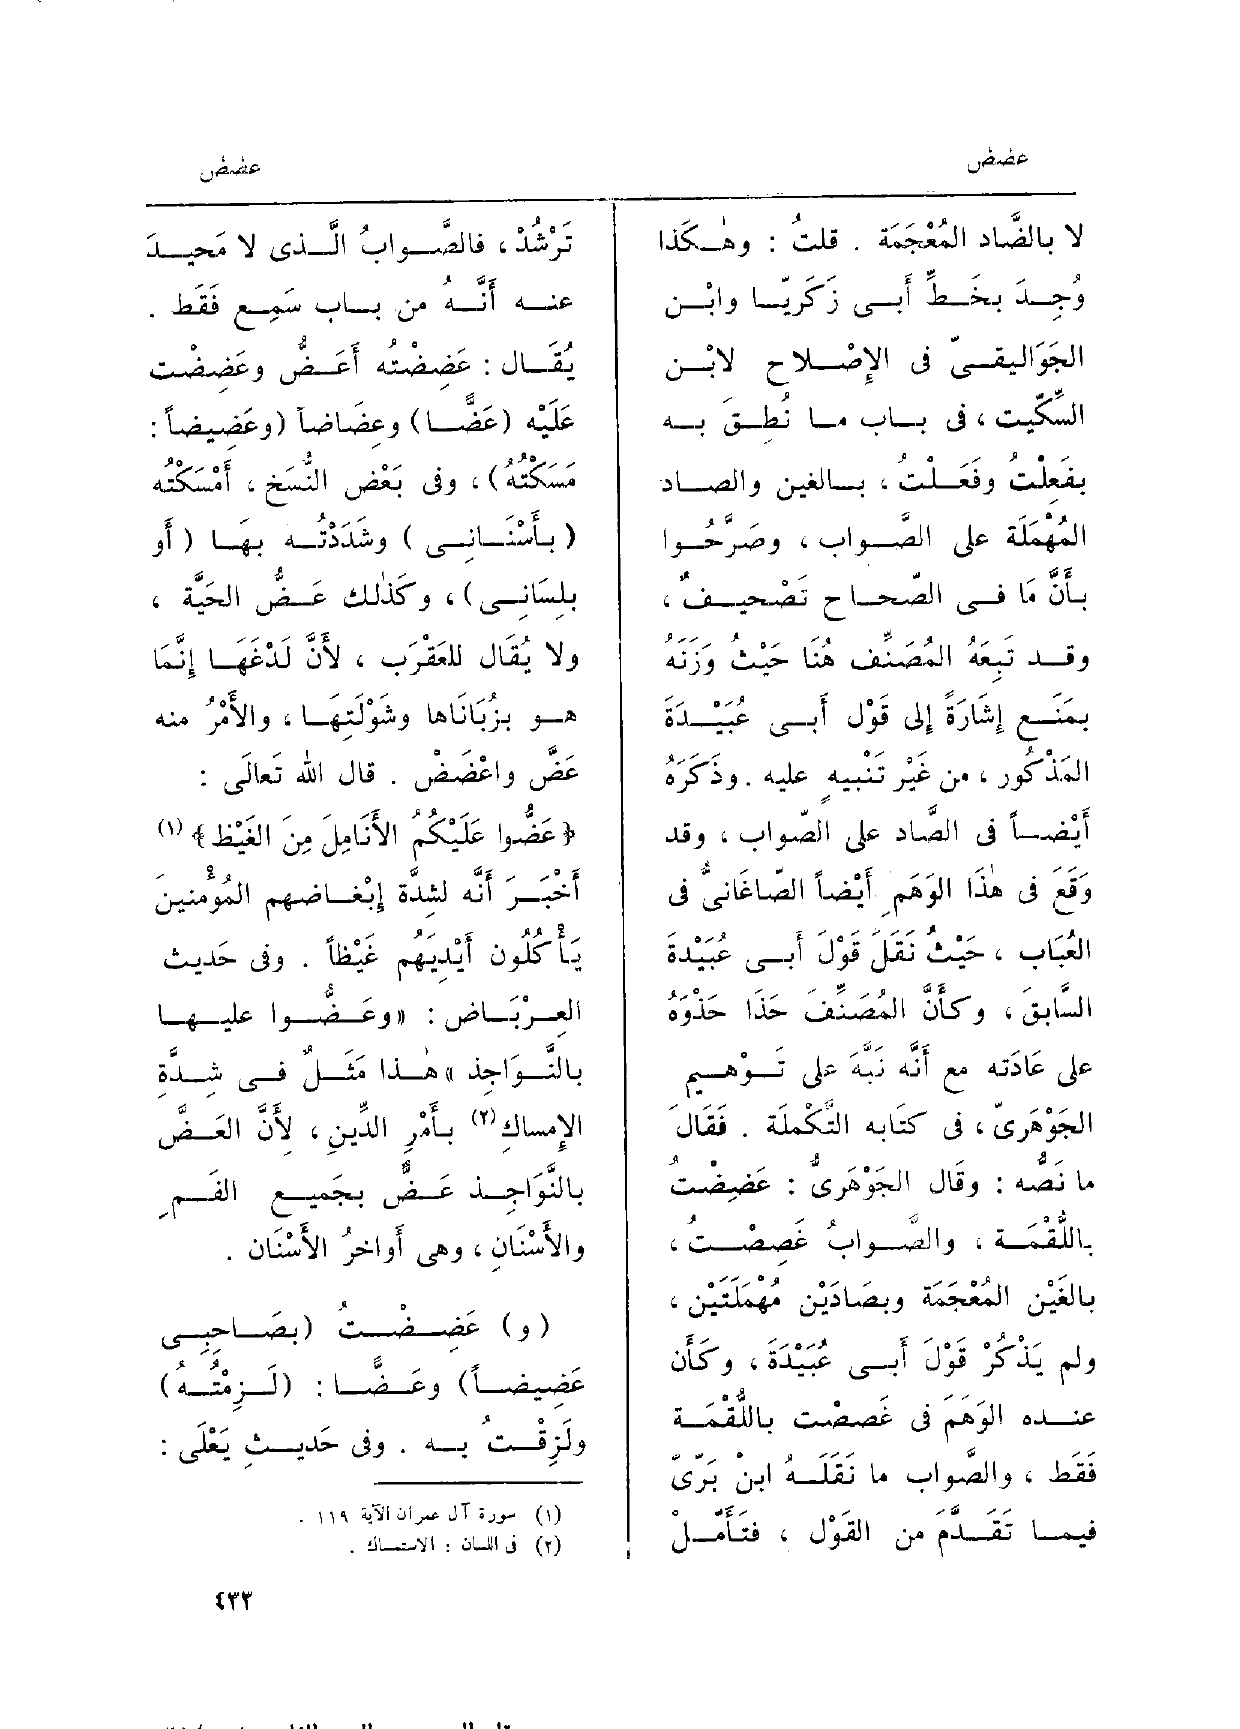 عضض
عضض
لا بالضَّاد المُعْجَمَة . قلتُ : وهٰكَذا
وُجِدَ بخَطِّ أَبى زَكَرِيّا وابْن
الجَوَاليقىّ فى الإِصْلاح لابْن
السِّكِّيت ، فى باب ما نُطِقَ به
بفَعِلْتُ وفَعَلْتُ ، بالغين والصاد
المُهْمَلَة على الصَّواب ، وصَرَّحُوا
بأَنَّ مَا فى الصّحاح تَصْحيفٌ ،
وقد تَبِعَهُ المُصَنِّف هُنَا حَيْثُ وَزَنَهُ
بمَنَع إِشَارَةً إِلى قَوْل أَبى عُبَيْدَةَ
المَذْكُورِ ، من غَيْر تَنْبيهٍ عليه . وذَكَرَهُ
أَيْضاً فى الصَّاد على الصّواب ، وقد
وَقَعَ فى هٰذا الوَهَمِ أَيْضاً الصّاغَانىُّ فى
العُبَاب ، حَيْثُ نَقَلَ قَوْلَ أَبى عُبَيْدَةَ
السَّابقَ ، وكأَنَّ المُصَنِّفَ حَذَا حَذْوَهُ
على عَادَته مع أَنَّه نَبَّهَ على تَوْهيم
الجَوْهَرىّ ، فى كتَابه التَّكْملَة . فَقَالَ
ما نَصُّه : وقَال الجَوْهَرىُّ : عَضِضْتُ
باللُّقْمَة ، والصَّوابُ غَصِصْتُ ،
بالغَيْن المُعْجَمَة وبصَادَيْن مُهْمَلَتَيْن ،
ولم يَذْكُرْ قَوْلَ أَبى عُبَيْدَةَ ، وكَأَن
عنده الوَهَمَ فى غَصصْت باللُّقْمَة
فَقَط ، والصَّواب ما نَقَلَهُ ابنُ بَرّىّ
فيما تَقَدَّم من القَوْل ، فتَأَمَّلْ
تَرْشُدْ ، فالصَّوابُ الَّذى لا مَحيدَ
عنه أَنَّهُ من باب سَمِع فَقَط .
يُقَال : عَضِضْتُه أَعَضُّ وعَضِضْت
عَلَيْه (عَضًّا) وعِضَاضاً (وعَضِيضاً :
مَسَكْتُهُ) ، وفى بَعْض النُّسَخ ، أَمْسَكْتُه
( بأَسْنَانِى ) وشَدَدْتُه بهَا ( أَو
بلِسَانِى) ، وكَذٰلك عَضُّ الحَيَّة ،
ولا يُقَال للعَقْرَب ، لأَنَّ لَدْغَهَا إِنَّمَا
هو بزُبَانَاها وشَوْلَتِهَا ، والأَمْرُ منه
عَضَّ واعْضَضْ . قال الله تَعالَى :
﴿عَضُّوا عَلَيْكُمُ الأَنَامِلَ مِنَ الغَيْظ﴾ (١)
أَخْبَرَ أَنَّه لشدَّة إِبْغَاضهم المُؤْمنين
يَأْكُلُون أَيْدِيَهُم غَيْظاً . وفى حَديث
العِرْبَاض : «وعَضُّوا عليها
بالنَّوَاجِذ» هٰذا مَثَلٌ فى شِدَّةِ
الإِمساك (٢) بأَمْرِ الدِّين ، لأَنَّ العَضَّ
بالنَّوَاجِذ عَضٌّ بجَميع الفَمِ
والأَسْنَانِ ، وهى أَواخرُ الأَسْنَان .
(و) عَضِضْتُ (بصَاحِبِى
عَضِيضاً) وعَضًّا : (لَزِمْتُهُ)
ولَزِقْتُ به . وفى حَديث يَعْلَى :
(١) سورة آل عمران الآية ١١٩ .
(٢) فى اللسان : الاستمساك .
٤٣٣